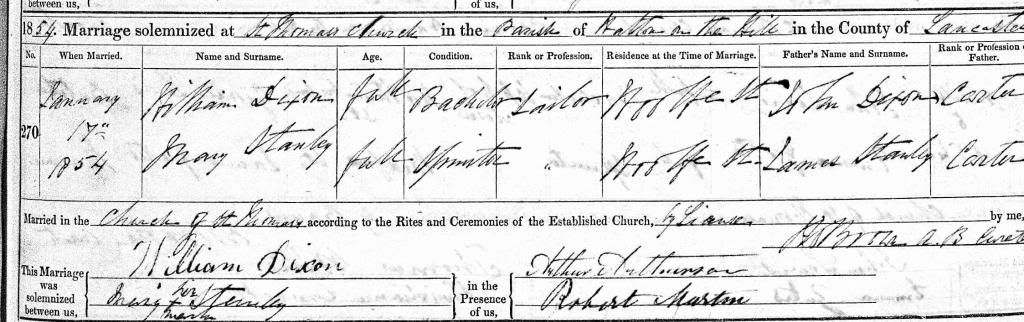 between us,
of us,
1854. Marriage solemnized at St Thomas's Church in the Parish of Walton on the Hill in the County of Lancaster
No. When Married. Name and Surname. Age. Condition. Rank or Profession. Residence at the Time of Marriage. Father's Name and Surname. Rank or Profession of Father.
270 January 17th 1854
William Dixon full Bachelor Sailor St John Dixon Carter
Mary Stanley full Spinster " St James Stanley Carter
Married in the Church of St Thomas according to the Rites and Ceremonies of the Established Church, by License by me,
A. B. Curate
This Marriage was solemnized between us,
William Dixon
Mary Stanley
her X mark
in the Presence of us,
Arthur
Robert Martin